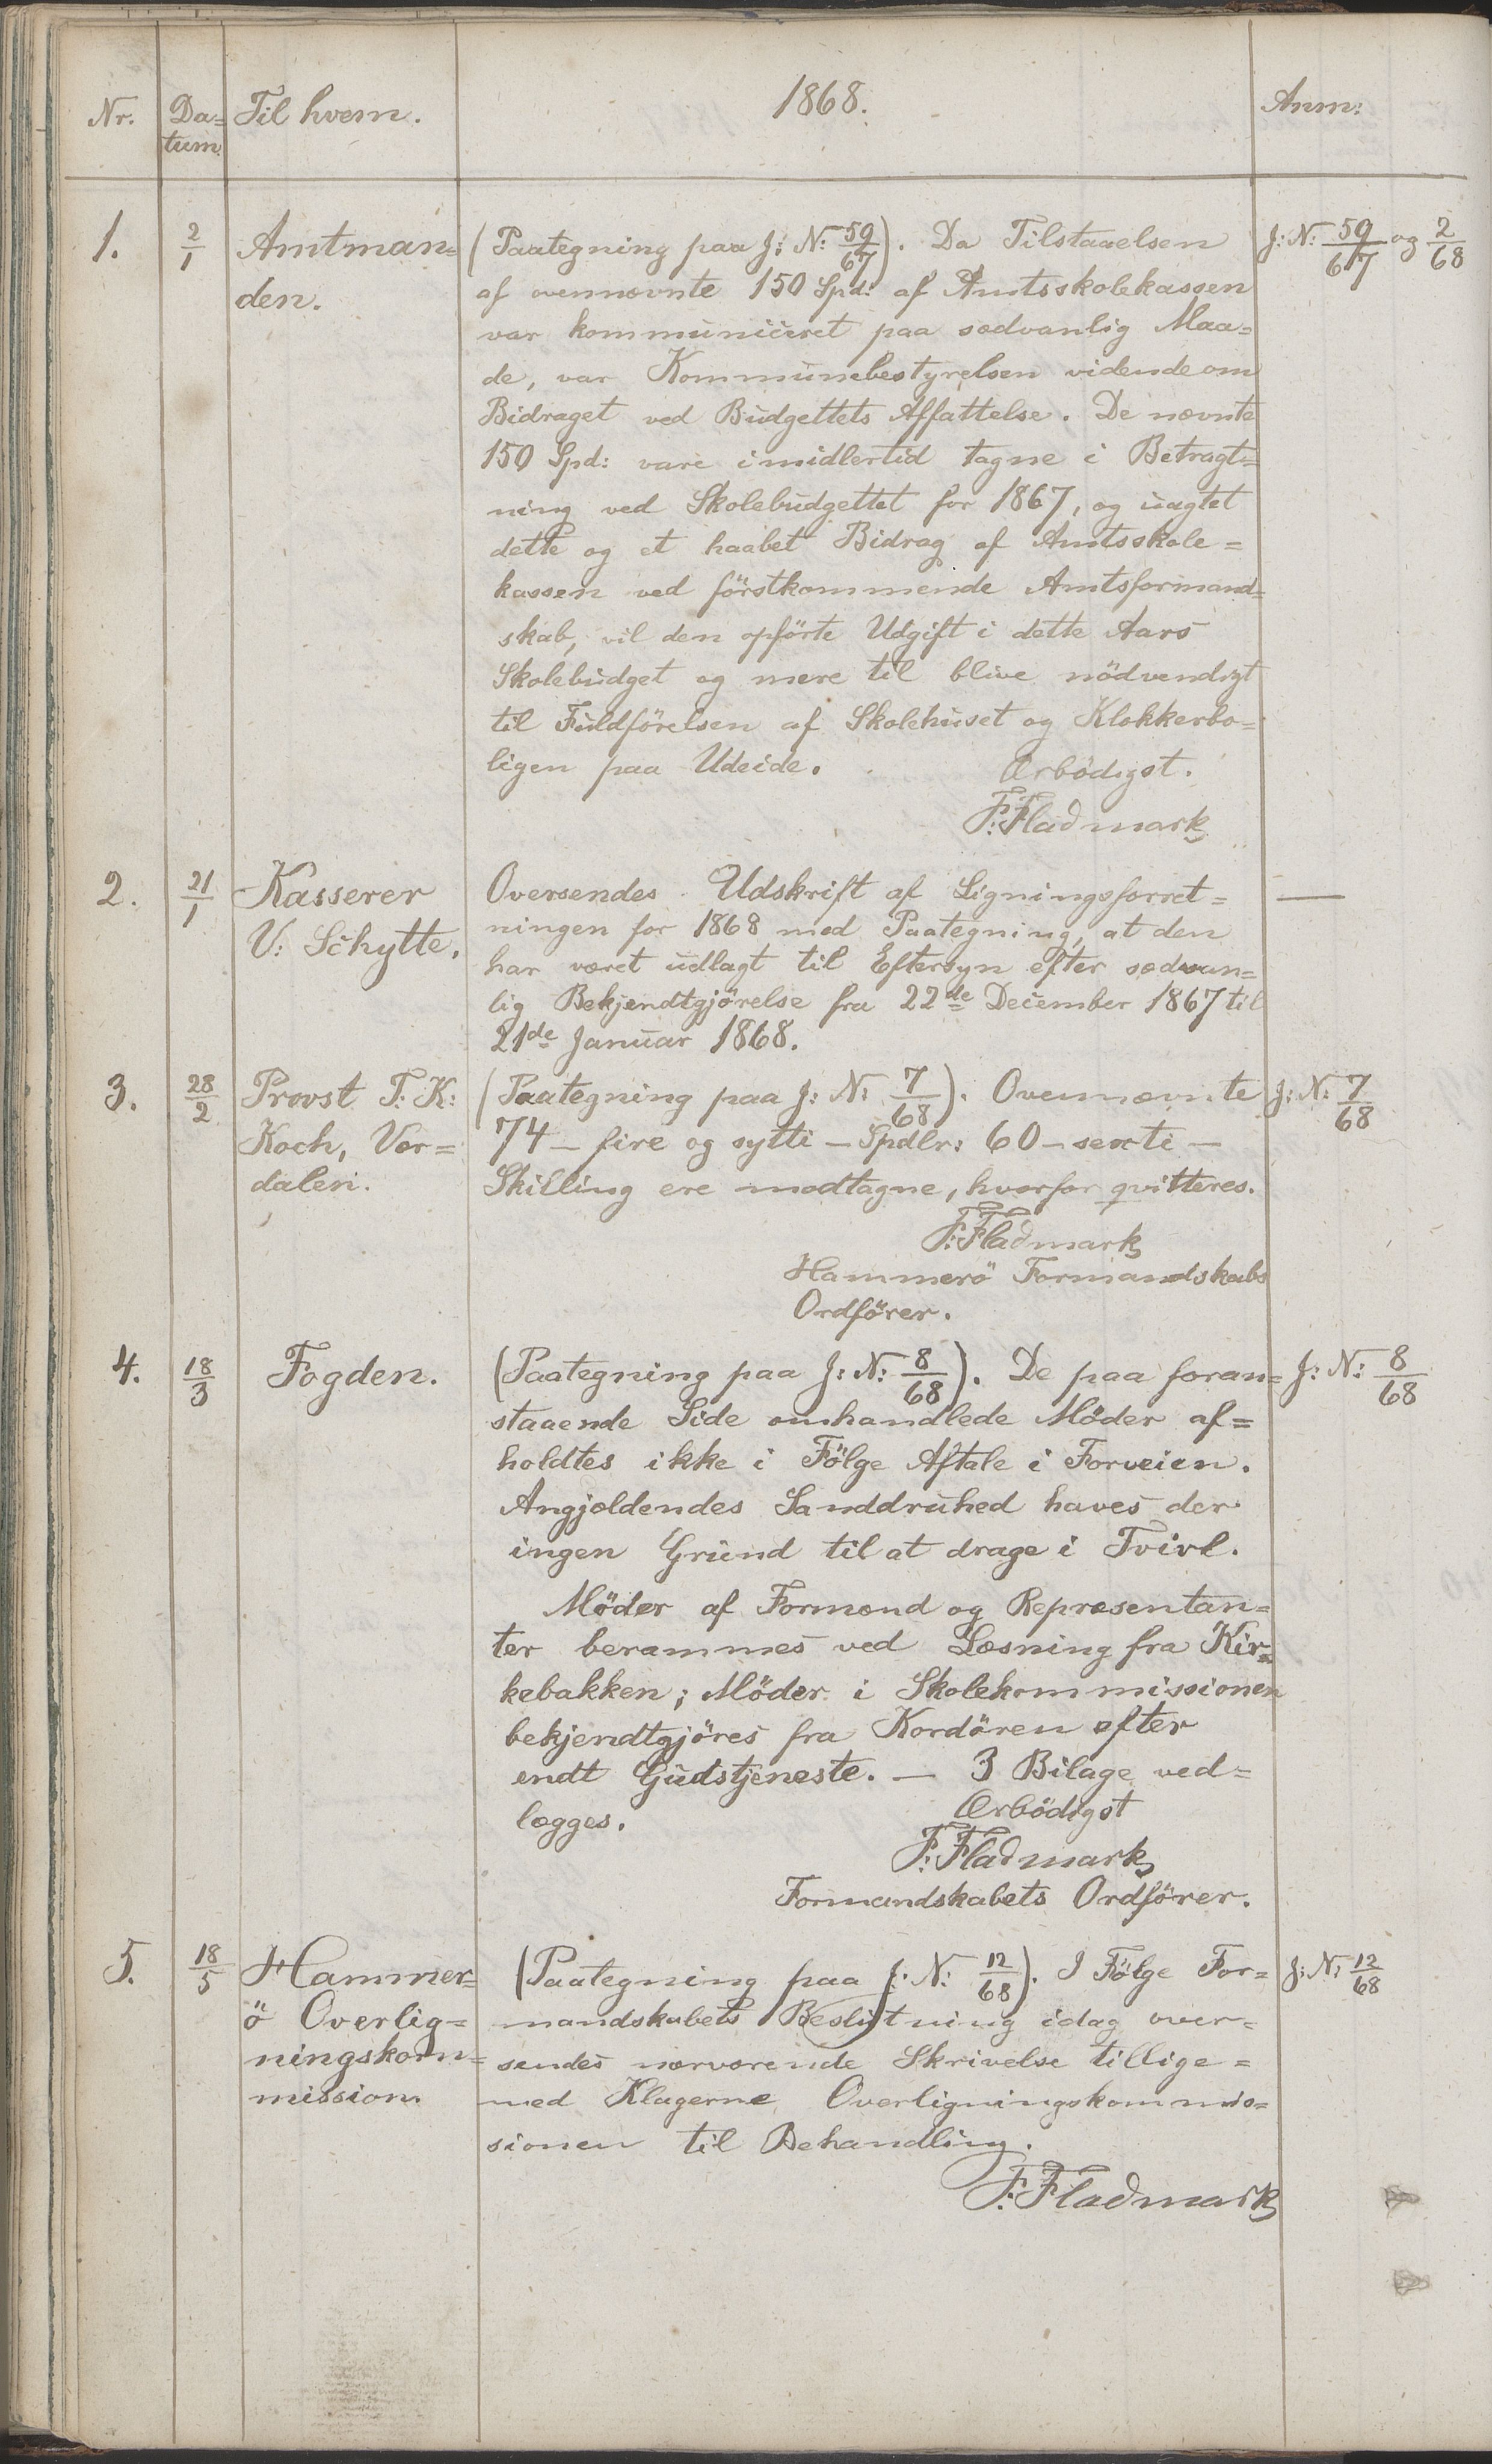 Nr. Da= Til hvem. 1868. Anm:
tum.
1. 2/1 Amtman= (Paategning paa J: N: 59/67). Da Tilstaaelsen J: N: 59/67 og 2/68
den. af ovennævnte 150 Spd: af Amtsskolekassen
var kommuniceret paa sædvanlig Maa=
de, var Kommunebestyrelsen vidende om
Bidraget ved Budgettets Affattelse. De nævnte
150 Spd: vare imidlertid tagne i Betragt=
ning ved Skolebudgettet for 1867, og uagtet
dette og et haabet Bidrag af Amtsskole=
kassen ved förstkommende Amtsformand=
skab, vil den opförte Udgift i dette Aars
Skolebudget og mere til blive nödvendigt
til Fuldförelsen af Skolehuset og Klokkerbo=
ligen paa Udeide. Ærbödigst.
F: Fladmark
2. 21/1 Kasserer Oversendes Udskrift af Ligningsforret= —
V: Schytte. ningen for 1868 med Paategning, at den
har været udlagt til Eftersyn efter sædvan=
lig Bekjendtgjörelse fra 22de December 1867 til
21de Januar 1868.
3. 28/2 Provst T: K: (Paategning paa J: N: 7/68). Ovennævnte J: N: 7/68
Koch, Vær= 74 – fire og sytti – Spdlr: 60 – sexti –
dalen. Skilling ere modtagne, hvorfor qvitteres.
F: Fladmark
Hammerö Formandskabs
Ordförer.
4. 18/3 Fogden. (Paategning paa J: N: 8/68). De paa foran= J: N: 8/68
staaende Side omhandlede Möder af=
holdtes ikke i Fölge Aftale i Forveien.
Angjældendes Sanddruhed haves der
ingen Grund til at drage i Tvivl.
Möder af Formænd og Repræsentan=
ter berammes ved Læsning fra Kir=
kebakken; Möder i Skolekommissionen
bekjendtgjöres fra Kordören efter
endt Gudstjeneste. — 3 Bilage ved=
lægges. Ærbödigst
F: Fladmark
Formandskabets Ordförer.
5. 18/5 Hammer= (Paategning paa J: N: 12/68). I Fölge For= J: N: 12/68
ö Overlig= mandskabets Beslutning idag over=
ningskom= sendes nærværende Skrivelse tillige=
mission. med Klagerne Overligningskommis=
sionen til Behandling.
F: Fladmark